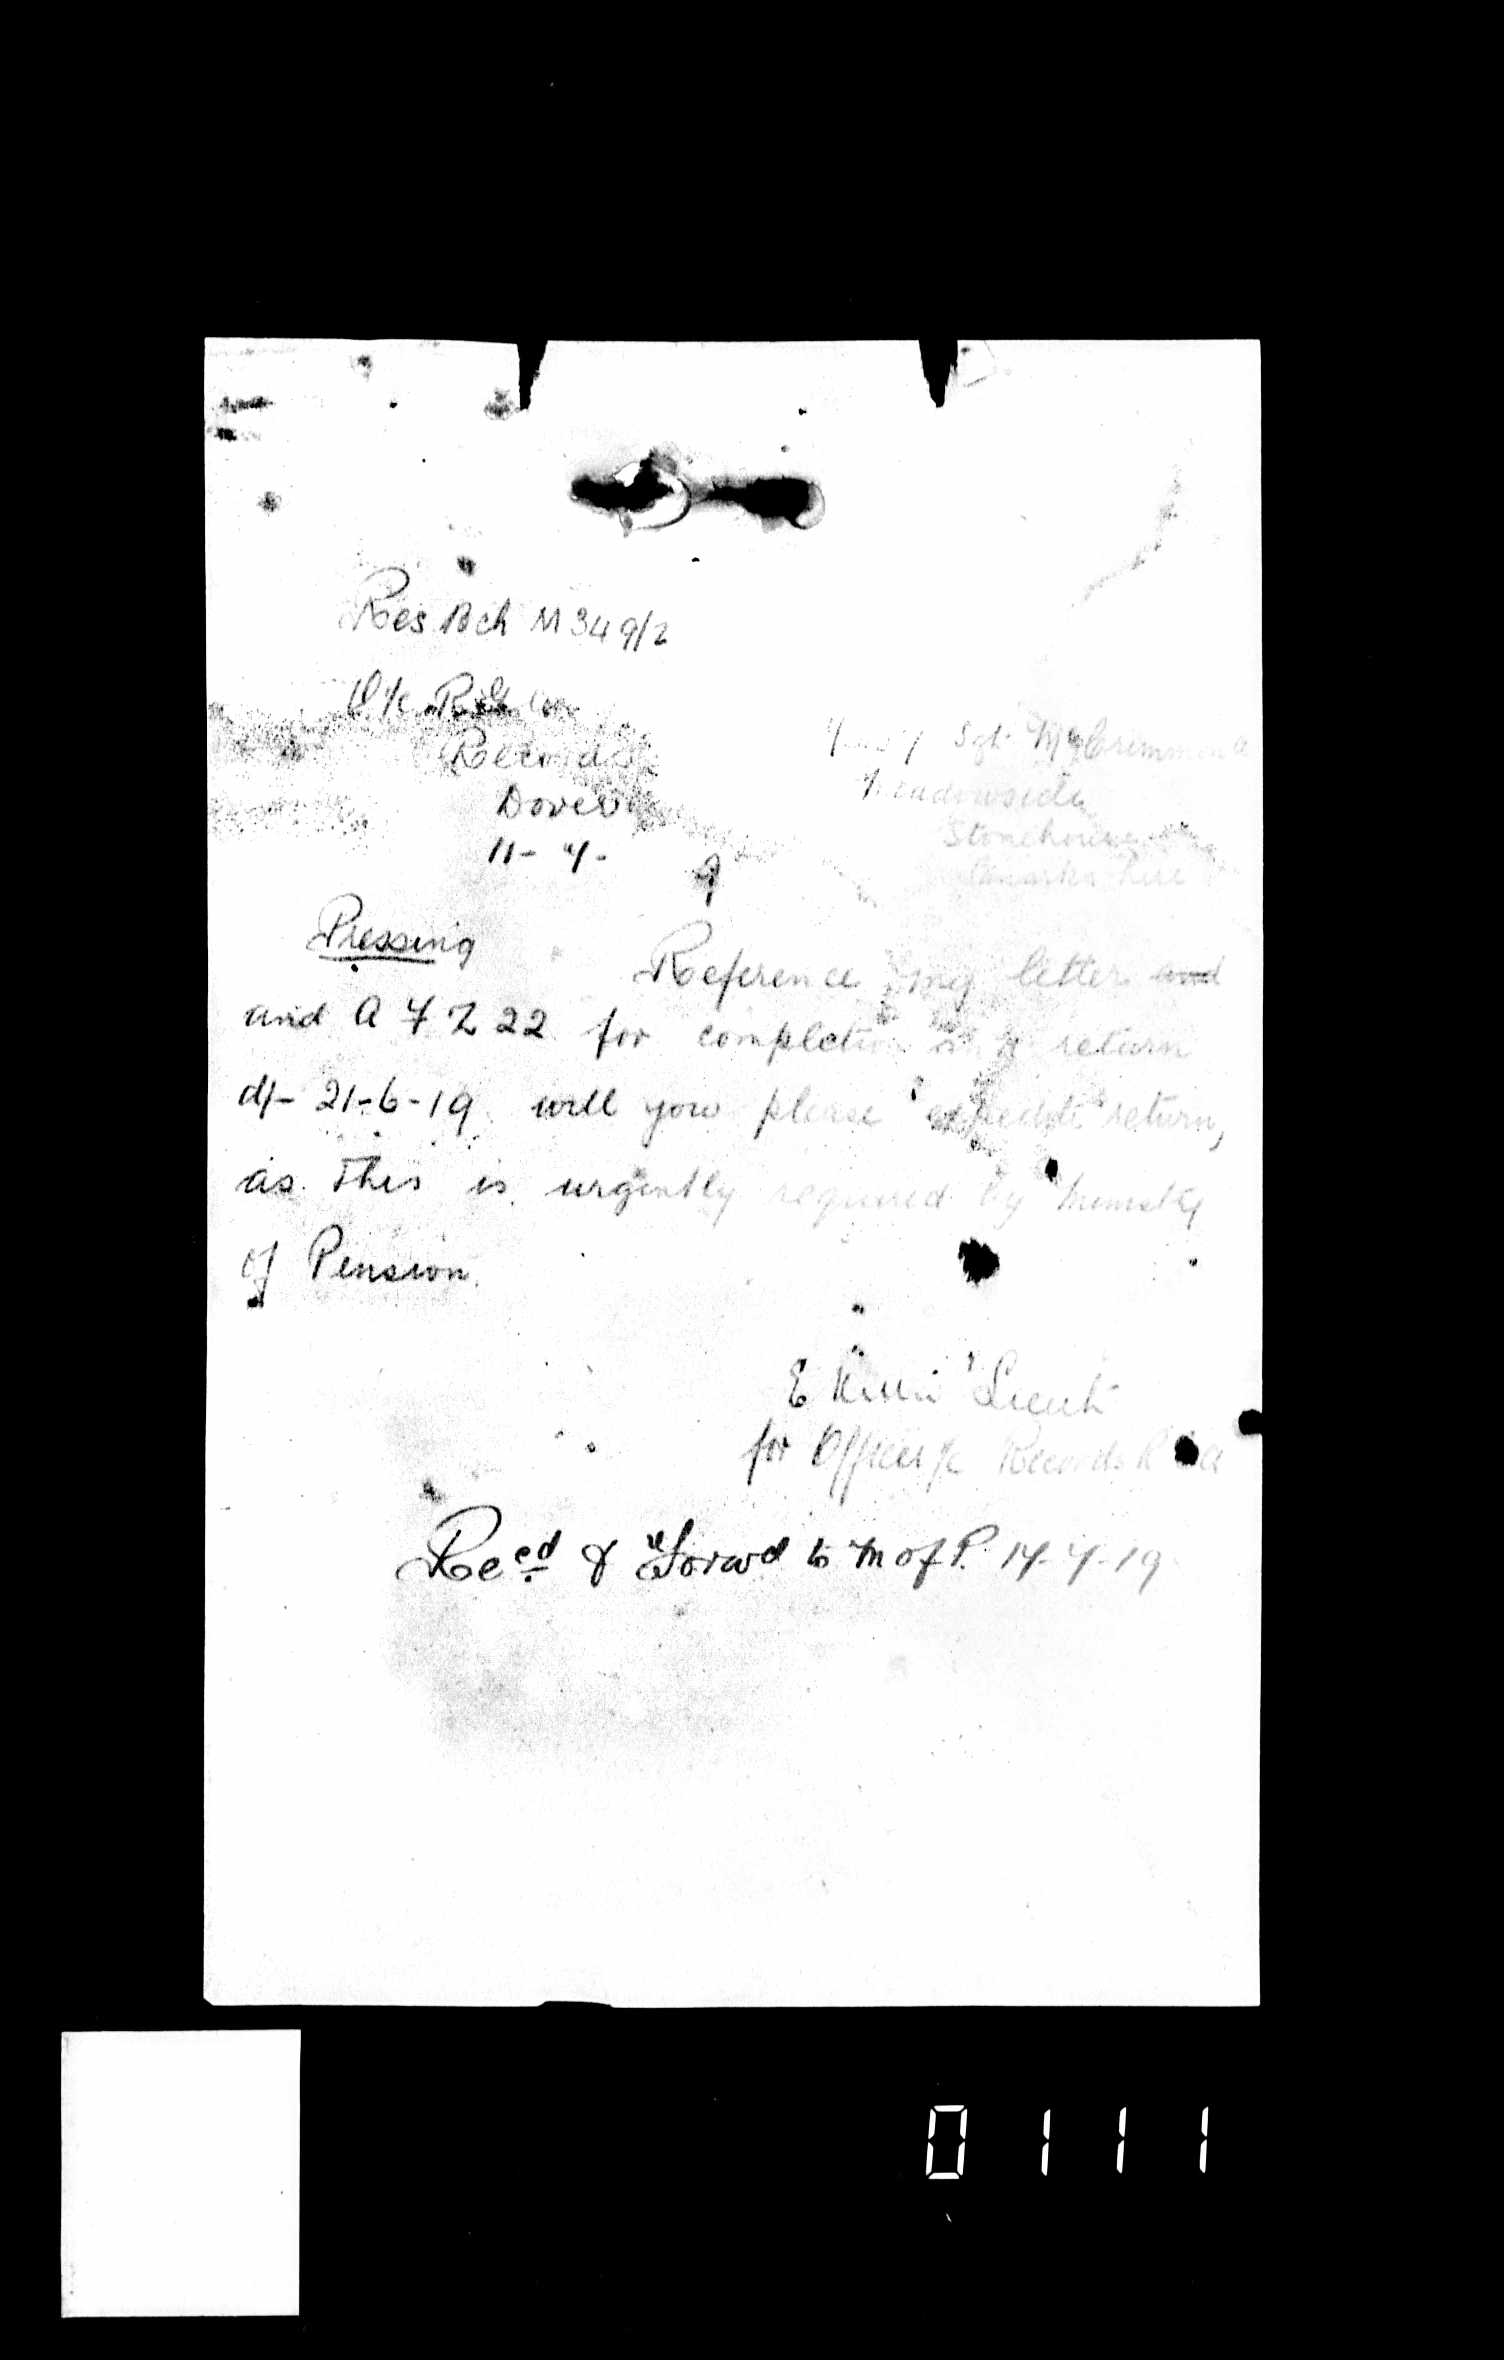 Res Bch M 349/2
O i/c
Records
Dover
11-7-
Sgt McCrimmon
Meadowside
Stonehouse
Lanarkshire
Pressing
Reference my letter and
and A F Z 22 for completion & return
d/- 21-6-19 will you please expedite return,
as this is urgently required by Ministry
of Pension.
E Lieut
for Officer i/c Records R G A
Recd & Forwd to M of P. 14-7-19
0111